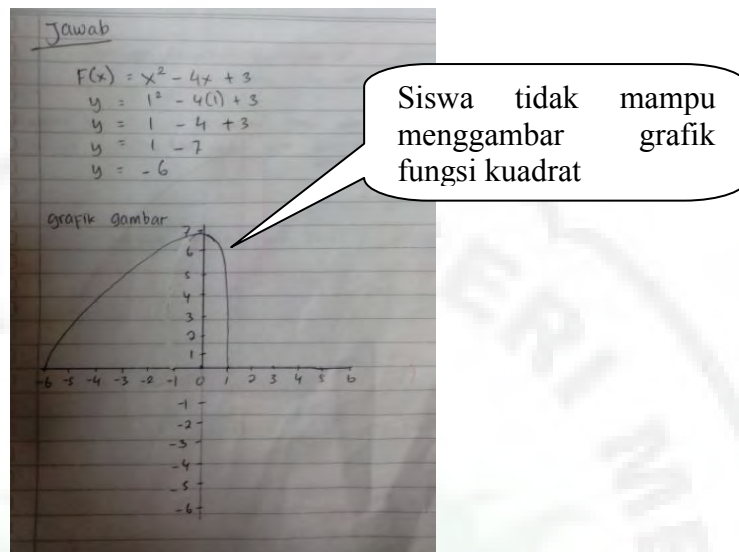 Jawab
F(x) = x² - 4x + 3
y = 1² - 4(1) + 3
y = 1 - 4 + 3
y = 1 - 7
y = -6
Siswa tidak mampu
menggambar grafik
fungsi kuadrat
grafik gambar
7
6
5
4
3
2
1
-6 -5 -4 -3 -2 -1 0 1 2 3 4 5 6
-1
-2
-3
-4
-5
-6
ERI ME